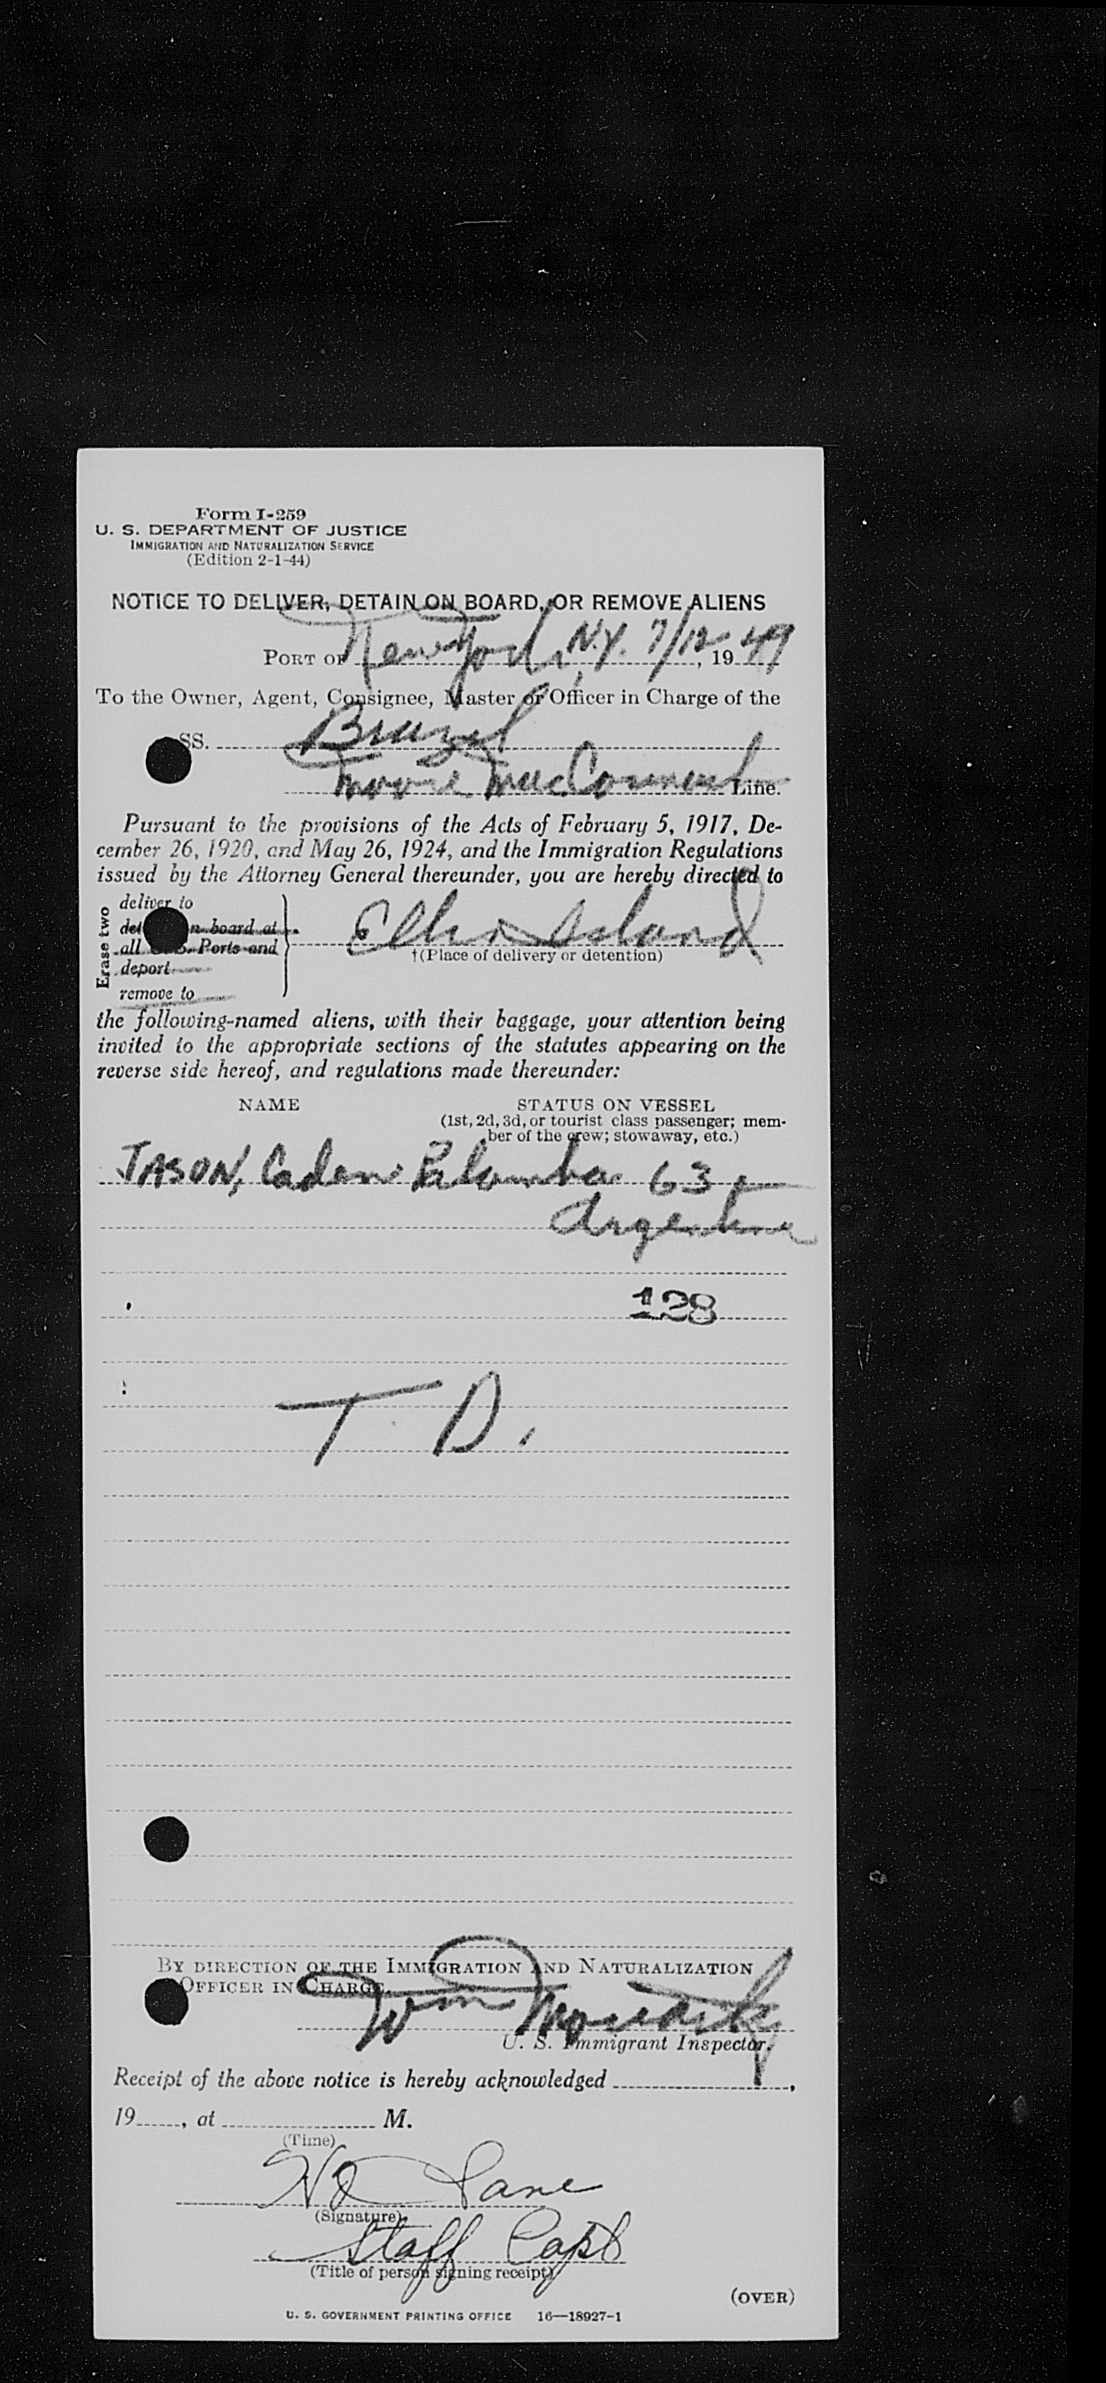 Form I-259
U. S. DEPARTMENT OF JUSTICE
IMMIGRATION AND NATURALIZATION SERVICE
(Edition 2-1-44)
NOTICE TO DELIVER, DETAIN ON BOARD, OR REMOVE ALIENS
PORT OF New York, N.Y. 7/12, 1949
To the Owner, Agent, Consignee, Master or Officer in Charge of the
SS. Brazil
Moore MacCormack Line.
Pursuant to the provisions of the Acts of February 5, 1917, De-
cember 26, 1920, and May 26, 1924, and the Immigration Regulations
issued by the Attorney General thereunder, you are hereby directed to
Erase two
deliver to
n board at
all S. Ports and
deport
remove to
Ellis Island
†(Place of delivery or detention)
the following-named aliens, with their baggage, your attention being
invited to the appropriate sections of the statutes appearing on the
reverse side hereof, and regulations made thereunder:
NAME STATUS ON VESSEL
(1st, 2d, 3d, or tourist class passenger; mem-
ber of the crew; stowaway, etc.)
JASON, 63
Argentine
128
T. D.
BY DIRECTION OF THE IMMIGRATION AND NATURALIZATION
OFFICER IN CHARGE.
Wm
U. S. Immigrant Inspector.
Receipt of the above notice is hereby acknowledged ,
19 , at M.
(Time)
Lane
(Signature)
Staff Capt
(Title of person signing receipt)
(OVER)
U. S. GOVERNMENT PRINTING OFFICE 16—18927-1